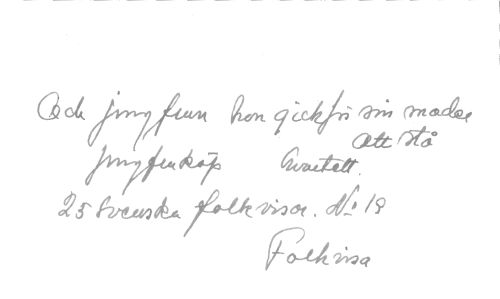 Och jungfrun hon gick för sin moder
att stå
jungfruköp Kvartett.
25 Svenska folkvisor. No 19
Folkvisa